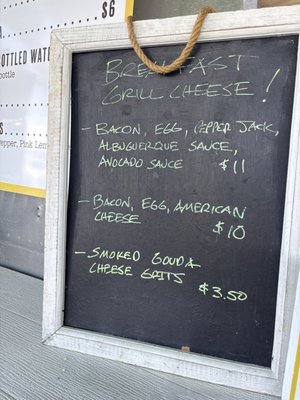 $6
OTTLED WATER
ottle
epper, Pink Lem
BREAKFAST
GRILL CHEESE !
- BACON, EGG, PEPPER JACK,
ALBUQUERQUE SAUCE,
AVOCADO SAUCE $11
- BACON, EGG, AMERICAN
CHEESE $10
- SMOKED GOUDA
CHEESE GRITS
$3.50